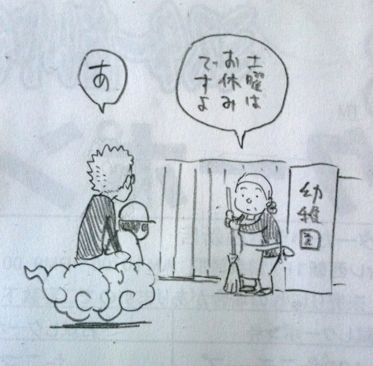 土曜は
お休み
ですよ
あ
幼稚園